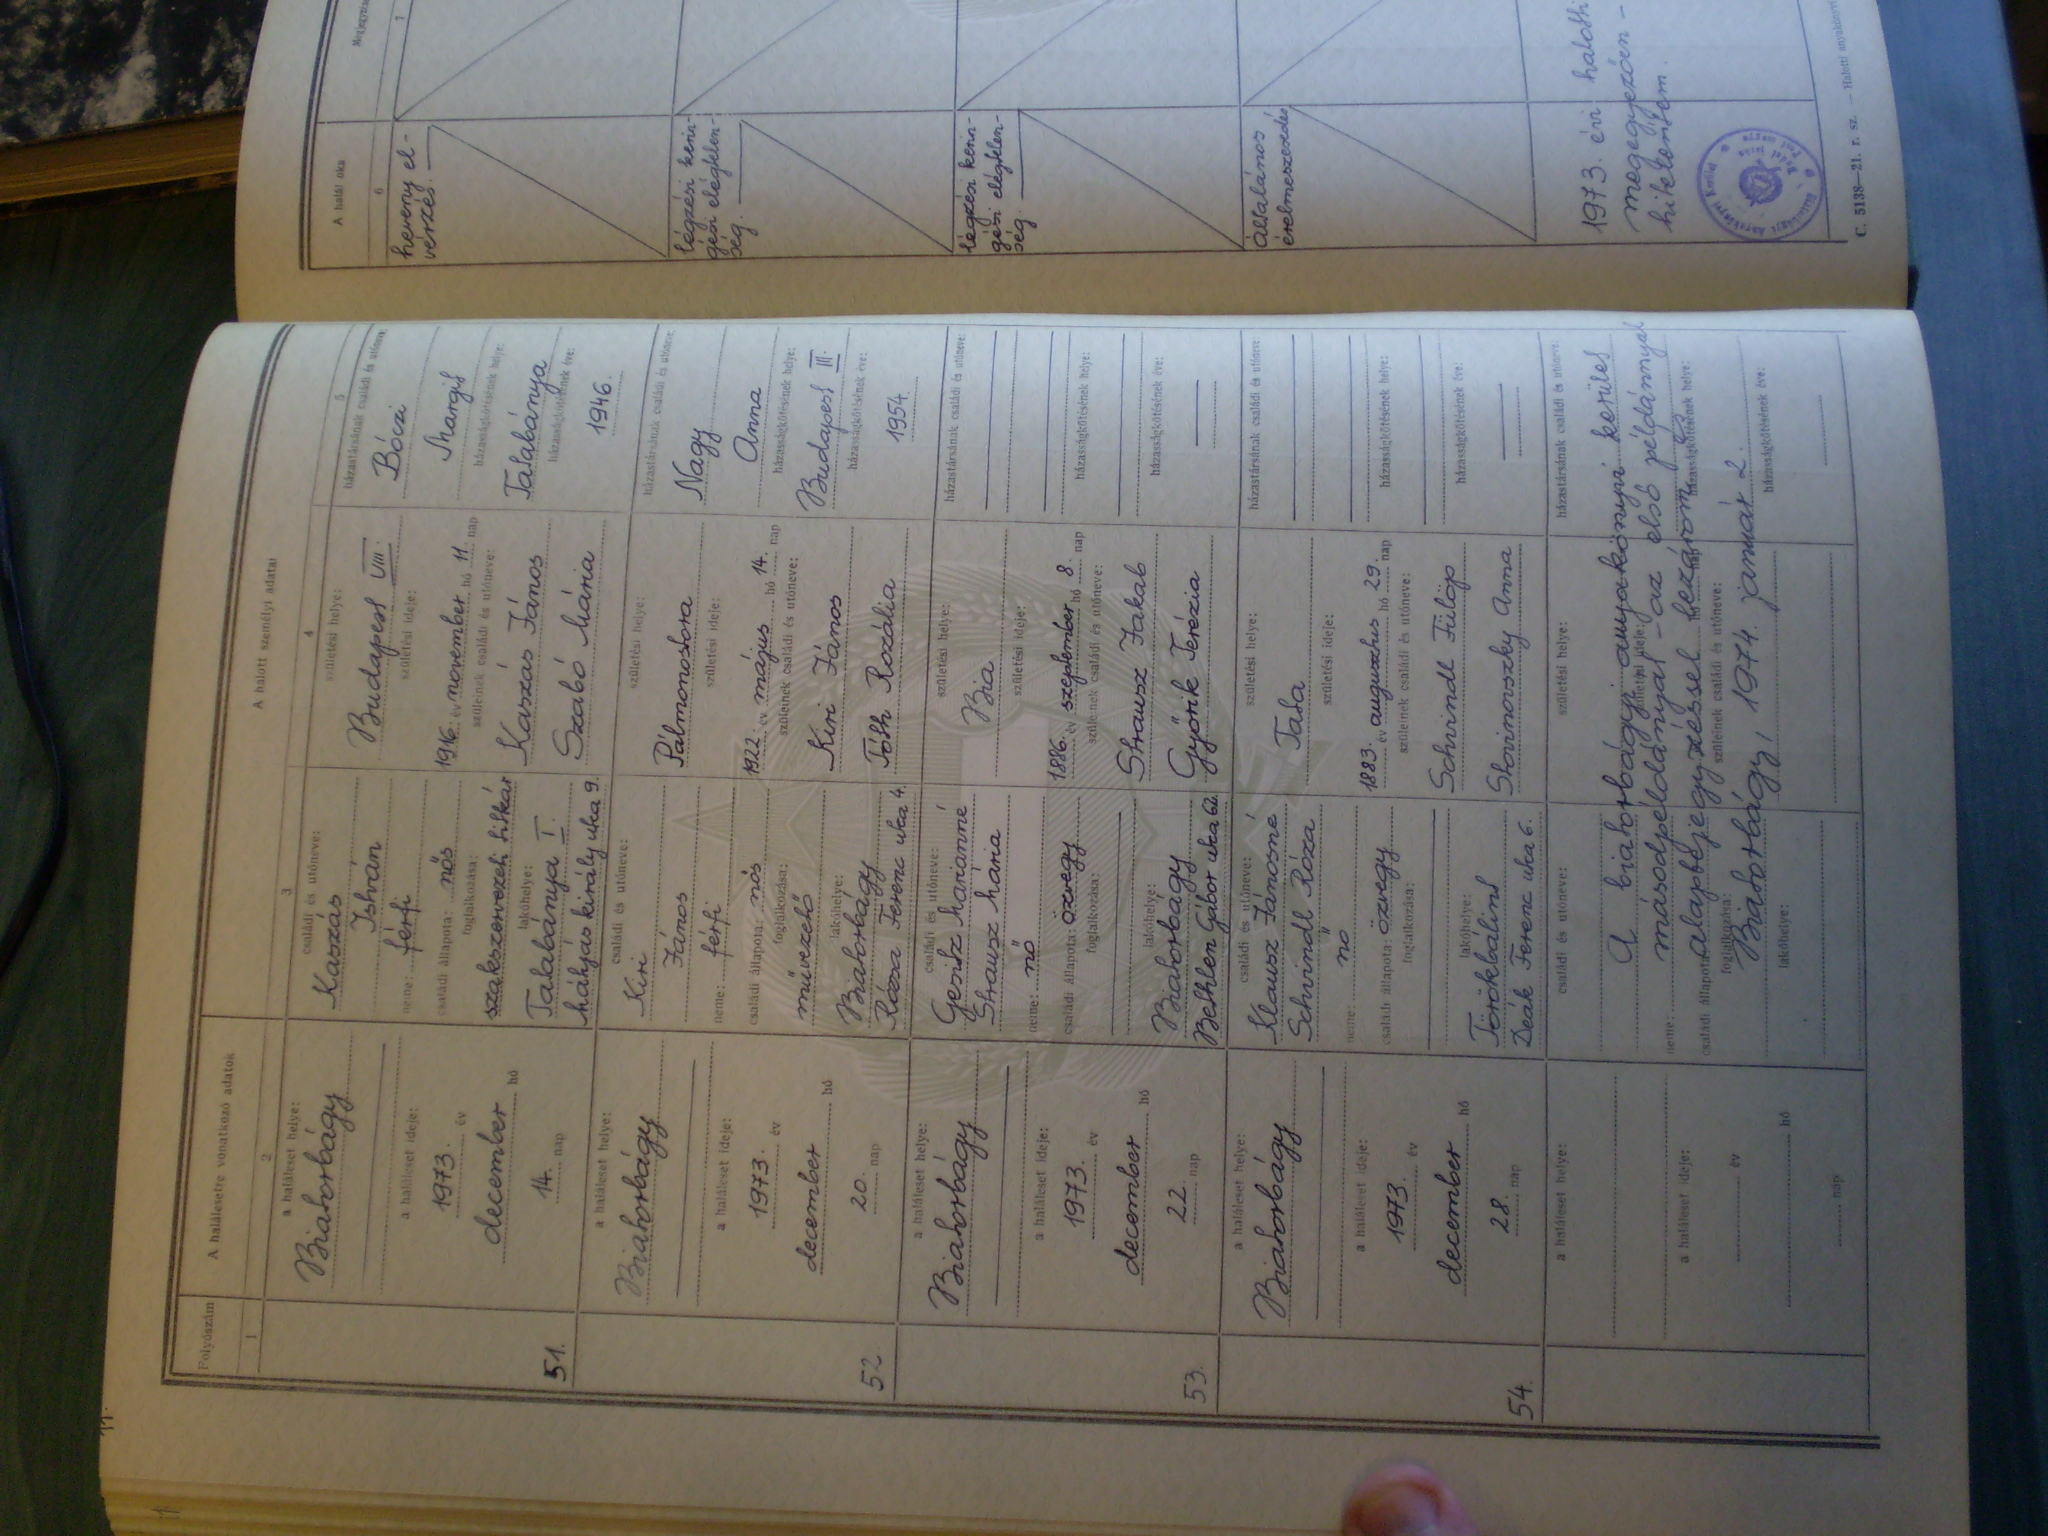 Folyószám
A halálesetre vonatkozó adatok
A halott személyi adatai
1
2
3
4
5
51.
a haláleset helye:
Biatorbágy
a haláleset ideje:
1973. év
december hó
14. nap
családi és utóneve:
Kaszás
István
neme: férfi
családi állapota: nős
foglalkozása:
szakszervezeti titkár
lakóhelye:
Tatabánya I.
Mátyás király utca 9.
születési helye:
Budapest VIII.
születési ideje:
1916. év november hó 11. nap
szüleinek családi és utóneve:
Kaszás János
Szabó Mária
házastársának családi és utóneve:
Bóczi
Margit
házasságkötésének helye:
Tatabánya
házasságkötésének éve:
1946.
52.
a haláleset helye:
Biatorbágy
a haláleset ideje:
1973. év
december hó
20. nap
családi és utóneve:
Kiri
János
neme: férfi
családi állapota: nős
foglalkozása:
művezető
lakóhelye:
Biatorbágy
Rózsa Ferenc utca 4.
születési helye:
Pálmonostora
születési ideje:
1922. év május hó 14. nap
szüleinek családi és utóneve:
Kiri János
Tóth Rozália
házastársának családi és utóneve:
Nagy
Anna
házasságkötésének helye:
Budapest III.
házasságkötésének éve:
1954.
53.
a haláleset helye:
Biatorbágy
a haláleset ideje:
1973. év
december hó
22. nap
családi és utóneve:
Gesitz Mariánné
Strausz Mária
neme: nő
családi állapota: özvegy
foglalkozása:
lakóhelye:
Biatorbágy
Bethlen Gábor utca 62.
születési helye:
Bia
születési ideje:
1886. év szeptember hó 8. nap
szüleinek családi és utóneve:
Strausz Jakab
Györik Terézia
házastársának családi és utóneve:
házasságkötésének helye:
házasságkötésének éve:
54.
a haláleset helye:
Biatorbágy
a haláleset ideje:
1973. év
december hó
28. nap
családi és utóneve:
Klausz Jánosné
Schvindl Róza
neme: nő
családi állapota: özvegy
foglalkozása:
lakóhelye:
Törökbálint
Deák Ferenc utca 6.
születési helye:
Taba
születési ideje:
1883. év augusztus hó 29. nap
szüleinek családi és utóneve:
Schvindl Fülöp
Anna
házastársának családi és utóneve:
házasságkötésének helye:
házasságkötésének éve:
a haláleset helye:
a haláleset ideje:
év
hó
nap
családi és utóneve:
neme:
családi állapota:
foglalkozása:
lakóhelye:
születési helye:
születési ideje:
szüleinek családi és utóneve:
házastársának családi és utóneve:
házasságkötésének helye:
házasságkötésének éve:
A biatorbágyi anyakönyvi kerület
másodpéldányát - az első példánnyal
alapbejegyzéssel lezárom.
Biatorbágy, 1974. január 2.
A halál oka
6
7
heveny el-
vérzés.
légzési kerin-
gési elégtelen-
ség.
légzési kerin-
gési elégtelen-
ség.
Általános
érelmeszesedés
1973. évi halotti
megegyezően -
hitelemben.
C. 5138—21. r. sz. — Halotti anyakönyv